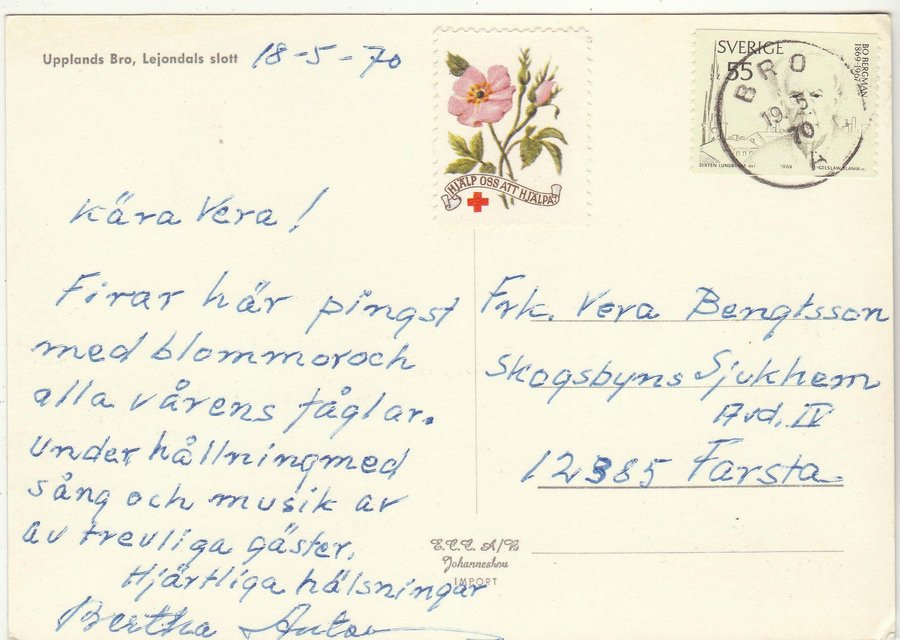 Upplands Bro, Lejondals slott 18-5-70
HJÄLP OSS ATT HJÄLPA!
SVERIGE
55
BO BERGMAN
1869-1967
SIXTEN LUNDBOHM 1969 CZESLAW SLANIA
BRO
19 5
70
Kära Vera!
Firar här pingst
med blommor och
alla vårens fåglar.
Underhållning med
sång och musik av
av trevliga gäster.
Hjärtliga hälsningar
Bertha
Frk. Vera Bengtsson
Skogsbyns Sjukhem
Avd. IV
12385 Farsta.
E.C.C. A/B
Johanneshov
IMPORT